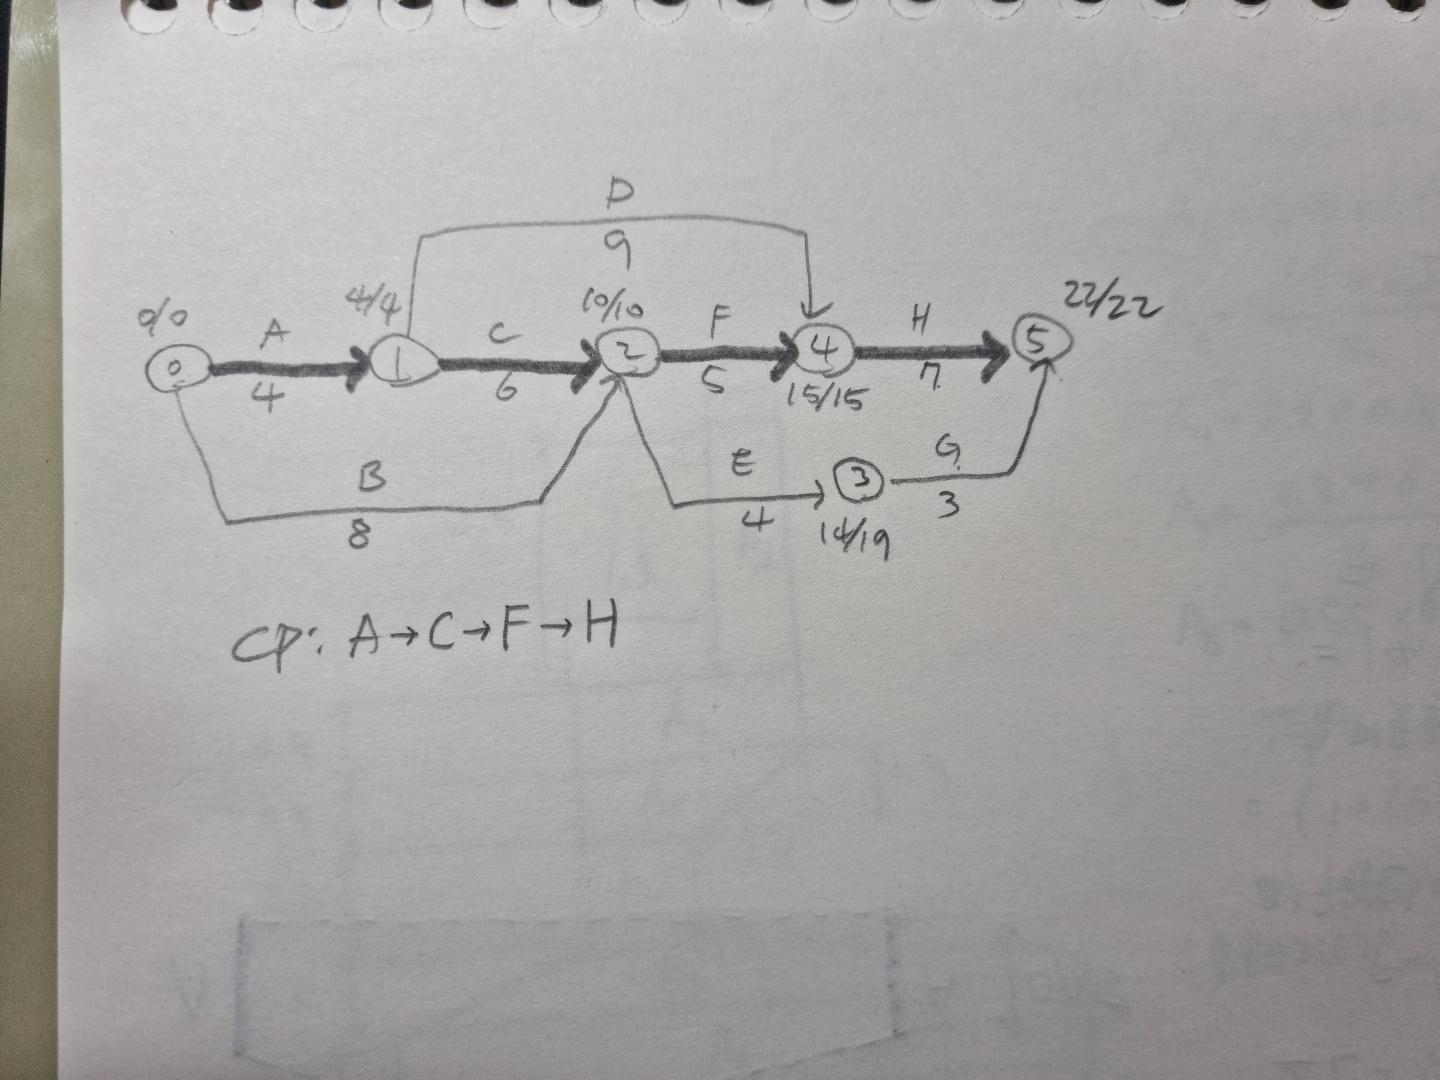 D
9
0/0 A 4/4 C 10/10 F H 22/22
0 1 2 4 5
4 6 5 15/15 7
B E 3 G
8 4 14/19 3
CP: A→C→F→H